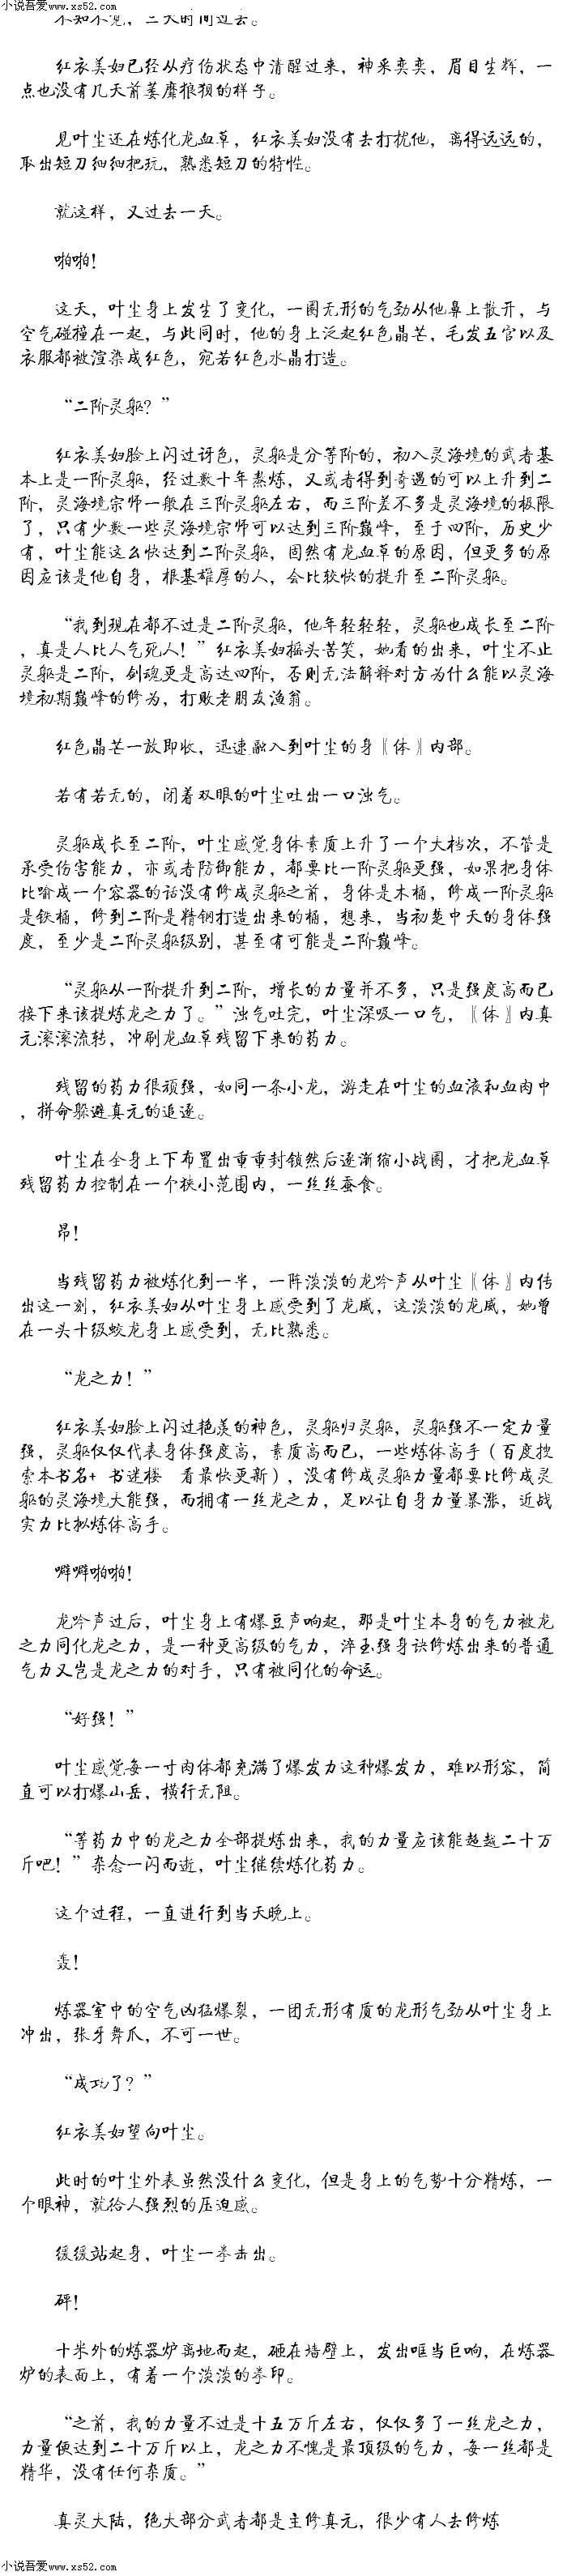 小说吾爱www.xs52.com
不知不觉，三天时间过去。
红衣美妇已经从疗伤状态中清醒过来，神采奕奕，眉目生辉，一
点也没有几天前萎靡狼狈的样子。
见叶尘还在炼化龙血草，红衣美妇没有去打扰他，离得远远的，
取出短刀细细把玩，熟悉短刀的特性。
就这样，又过去一天。
啪啪！
这天，叶尘身上发生了变化，一圈无形的气劲从他鼻上散开，与
空气碰撞在一起，与此同时，他的身上泛起红色晶芒，毛发五官以及
衣服都被渲染成红色，宛若红色水晶打造。
“二阶灵躯？”
红衣美妇脸上闪过讶色，灵躯是分等阶的，初入灵海境的武者基
本上是一阶灵躯，经过数十年熬炼，又或者得到奇遇的可以上升到二
阶，灵海境宗师一般在三阶灵躯左右，而三阶差不多是灵海境的极限
了，只有少数一些灵海境宗师可以达到三阶巅峰，至于四阶，历史少
有，叶尘能这么快达到二阶灵躯，固然有龙血草的原因，但更多的原
因应该是他自身，根基雄厚的人，会比较快的提升至二阶灵躯。
“我到现在都不过是二阶灵躯，他年轻轻轻，灵躯也成长至二阶
，真是人比人气死人！”红衣美妇摇头苦笑，她看的出来，叶尘不止
灵躯是二阶，剑魂更是高达四阶，否则无法解释对方为什么能以灵海
境初期巅峰的修为，打败老朋友渔翁。
红色晶芒一放即收，迅速融入到叶尘的身〖体〗内部。
若有若无的，闭着双眼的叶尘吐出一口浊气。
灵躯成长至二阶，叶尘感觉身体素质上升了一个大档次，不管是
承受伤害能力，亦或者防御能力，都要比一阶灵躯更强，如果把身体
比喻成一个容器的话没有修成灵躯之前，身体是木桶，修成一阶灵躯
是铁桶，修到二阶是精钢打造出来的桶，想来，当初楚中天的身体强
度，至少是二阶灵躯级别，甚至有可能是二阶巅峰。
“灵躯从一阶提升到二阶，增长的力量并不多，只是强度高而已
接下来该提炼龙之力了。”浊气吐完，叶尘深吸一口气，〖体〗内真
元滚滚流转，冲刷龙血草残留下来的药力。
残留的药力很顽强，如同一条小龙，游走在叶尘的血液和血肉中
，拼命躲避真元的追逐。
叶尘在全身上下布置出重重封锁然后逐渐缩小战圈，才把龙血草
残留药力控制在一个狭小范围内，一丝丝蚕食。
昂！
当残留药力被炼化到一半，一阵淡淡的龙吟声从叶尘〖体〗内传
出这一刻，红衣美妇从叶尘身上感受到了龙威，这淡淡的龙威，她曾
在一头十级蛟龙身上感受到，无比熟悉。
“龙之力！”
红衣美妇脸上闪过艳羡的神色，灵躯归灵躯，灵躯强不一定力量
强，灵躯仅仅代表身体强度高，素质高而已，一些炼体高手（百度搜
索本书名+ 书迷楼 看最快更新），没有修成灵躯力量都要比修成灵
躯的灵海境大能强，而拥有一丝龙之力，足以让自身力量暴涨，近战
实力比拟炼体高手。
噼噼啪啪！
龙吟声过后，叶尘身上有爆豆声响起，那是叶尘本身的气力被龙
之力同化龙之力，是一种更高级的气力，淬玉强身诀修炼出来的普通
气力又岂是龙之力的对手，只有被同化的命运。
“好强！”
叶尘感觉每一寸肉体都充满了爆发力这种爆发力，难以形容，简
直可以打爆山岳，横行无阻。
“等药力中的龙之力全部提炼出来，我的力量应该能超越二十万
斤吧！”杂念一闪而逝，叶尘继续炼化药力。
这个过程，一直进行到当天晚上。
轰！
炼器室中的空气凶猛爆裂，一团无形有质的龙形气劲从叶尘身上
冲出，张牙舞爪，不可一世。
“成功了？”
红衣美妇望向叶尘。
此时的叶尘外表虽然没什么变化，但是身上的气势十分精炼，一
个眼神，就给人强烈的压迫感。
缓缓站起身，叶尘一拳击出。
砰！
十米外的炼器炉离地而起，砸在墙壁上，发出哐当巨响，在炼器
炉的表面上，有着一个淡淡的拳印。
“之前，我的力量不过是十五万斤左右，仅仅多了一丝龙之力，
力量便达到二十万斤以上，龙之力不愧是最顶级的气力，每一丝都是
精华，没有任何杂质。”
真灵大陆，绝大部分武者都是主修真元，很少有人去修炼
小说吾爱www.xs52.com